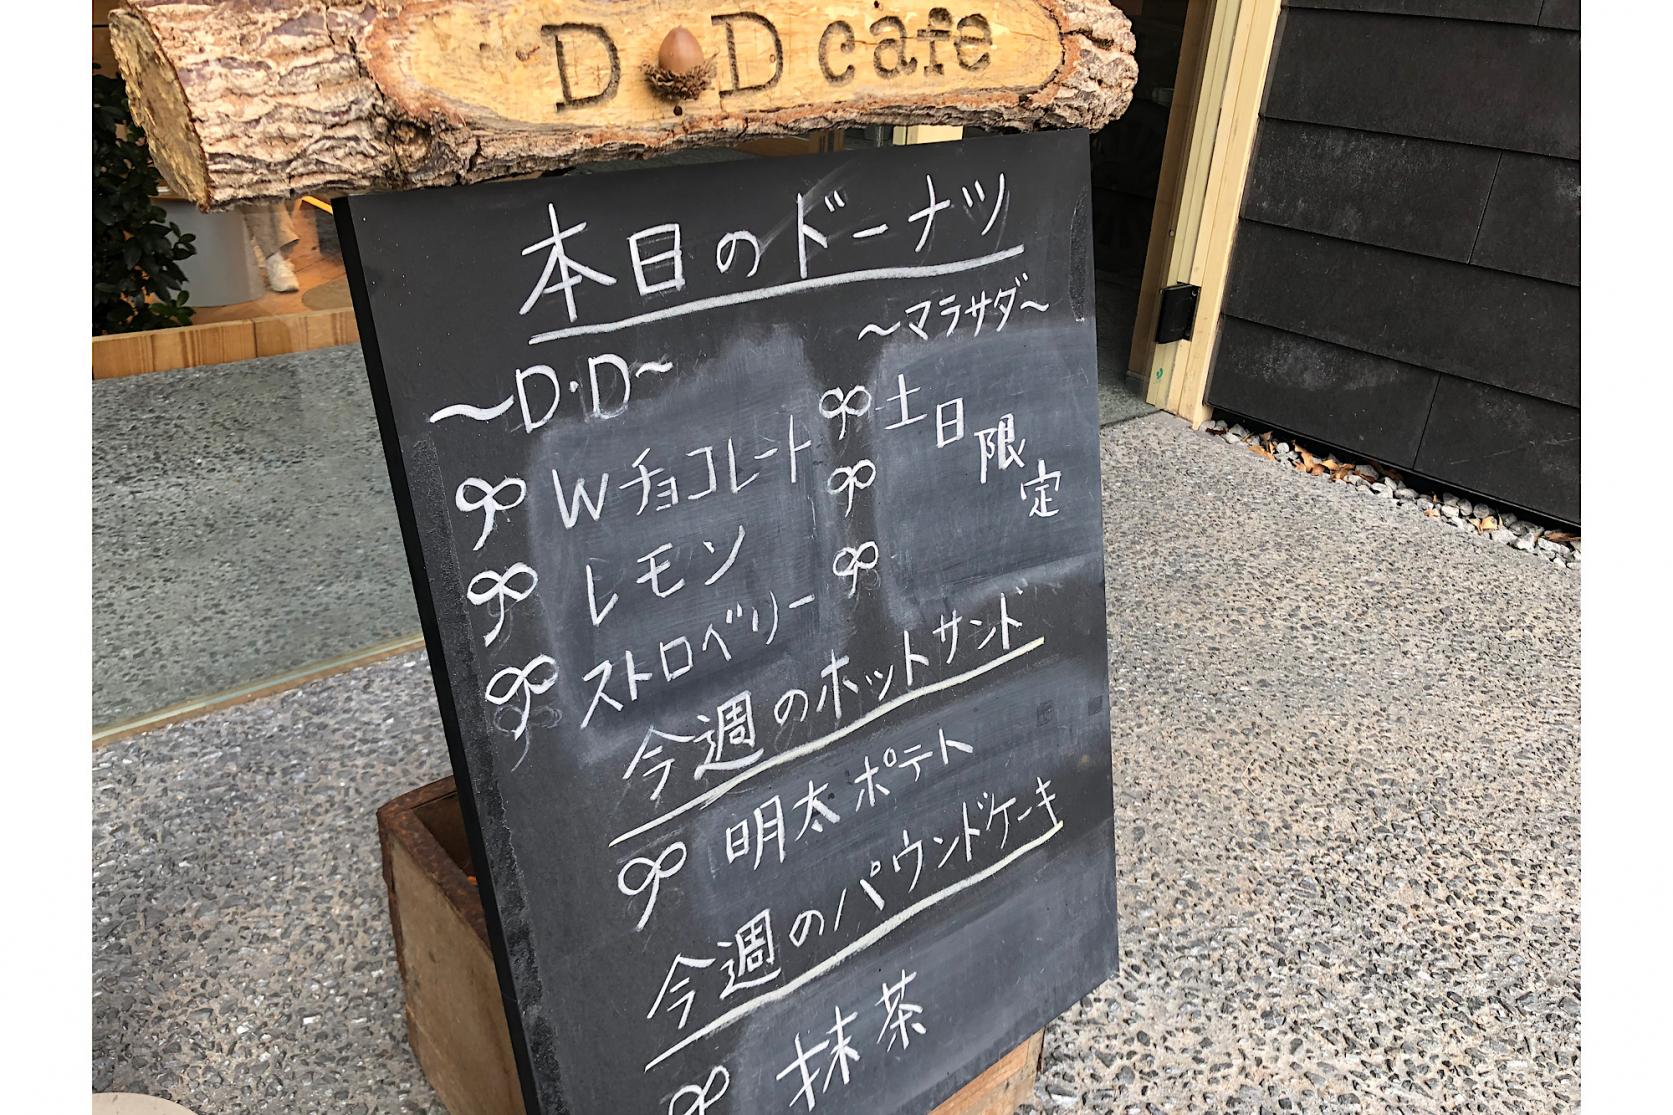 D D cafe
本日のドーナツ
～D・D～
Wチョコレート
レモン
ストロベリー
～マラサダ～
土日限定
今週のホットサンド
明太ポテト
今週のパウンドケーキ
抹茶